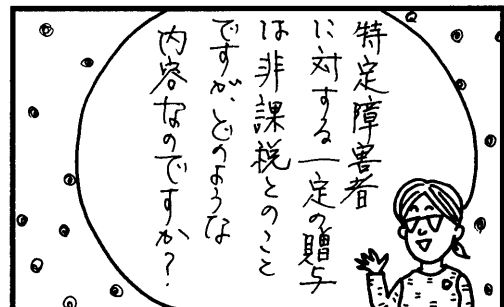 特定障害者
に対する一定の贈与
は非課税とのこと
ですが、どのような
内容なのですか？